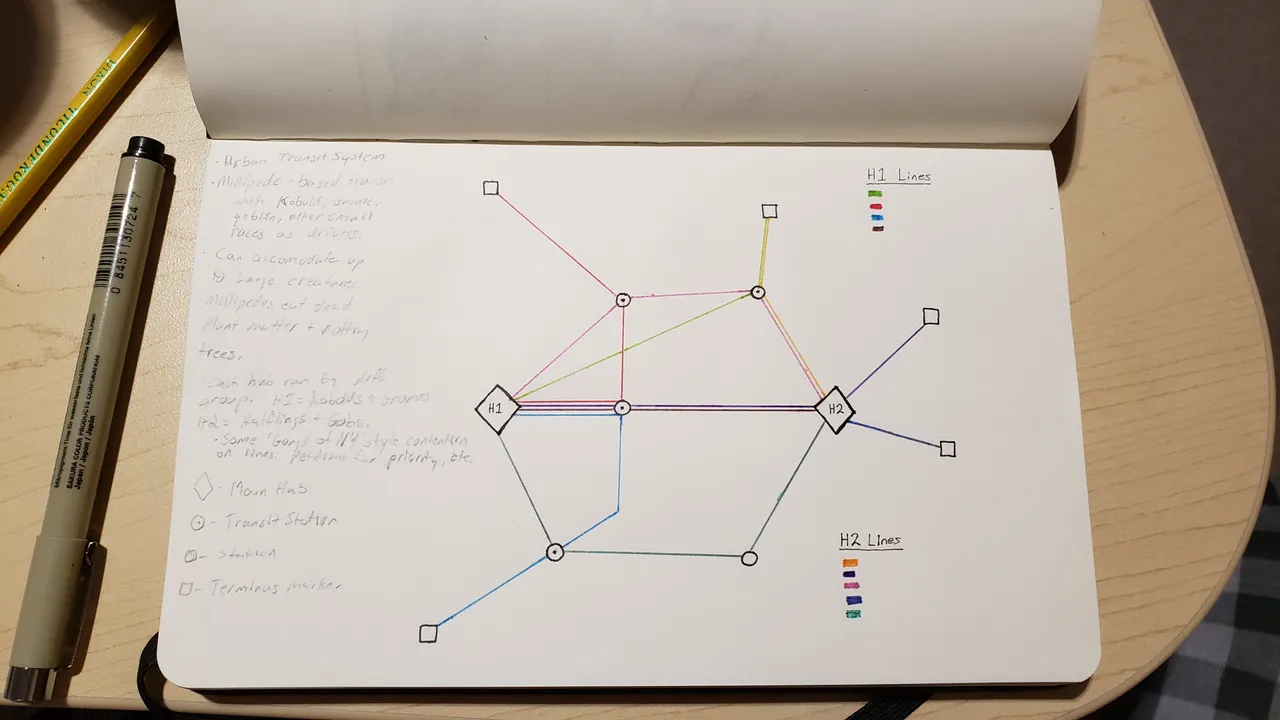 DIXON TICONDEROGA
0 8451130724 7
SAKURA COLOR PRODUCTS CORPORATION
Japan / Japon / Japón
· Urban Transit System
· Millipede-based transit
with Kobold, Gnome,
goblin, other small
races as drivers.
· Can accomodate up
to Large creatures
Millipedes eat dead
Plant matter + rotting
trees.
· Each hub ran by diff
group. H1 = Kobolds + Gnomes
H2 = Halflings + Gobs.
· Some 'Gangs of NY style contention
on lines. Petitions for priority, etc.
- Main Hub
- Transit Station
- Station
- Terminus marker
H1
H2
H1 Lines
H2 Lines